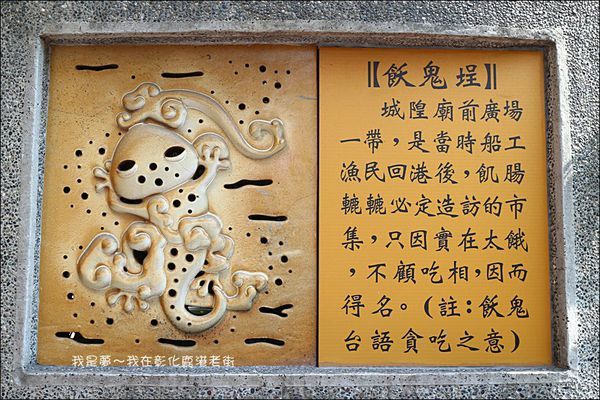 〚飫鬼埕〛
城隍廟前廣場
一帶，是當時船工
漁民回港後，飢腸
轆轆必定造訪的市
集，只因實在太餓
，不顧吃相，因而
得名。(註：飫鬼
台語貪吃之意)
我是夢～我在彰化鹿港老街